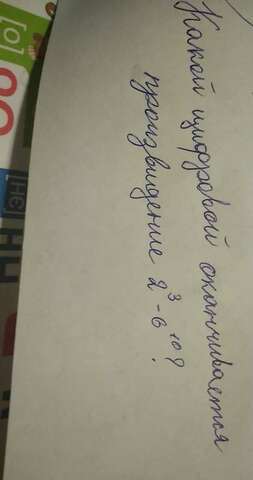 Какой цифровой оканчивается
произведение 2³ - 6¹⁰?
[О]
[НЕ]